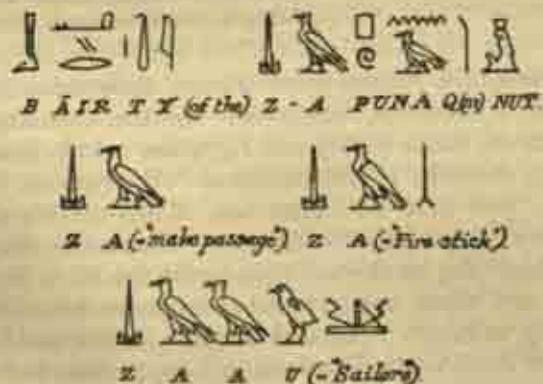 B ĀIR T Y (of the) Z - A PUNA Q(m) NUT.
Z A (="make passage") Z A (="Fire stick")
Z A A U (="Sailors")